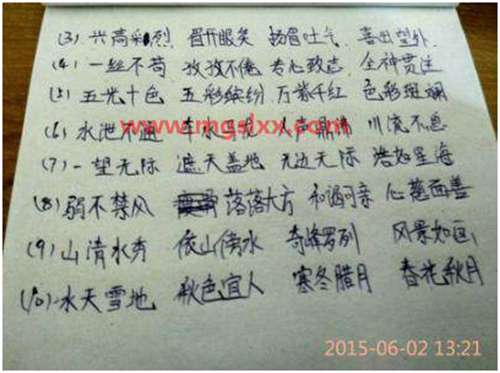 (3) 兴高彩烈 眉开眼笑 扬眉吐气 喜出望外
(4) 一丝不苟 孜孜不倦 专心致志 全神贯注
(5) 五光十色 五彩缤纷 万紫千红 色彩斑斓
(6) 水泄不通 车水马龙 人声鼎沸 川流不息
www.mgdxx.com
(7) 一望无际 遮天盖地 无边无际 浩如星海
(8) 弱不禁风 落落大方 和谒可亲 心慈面善
(9) 山清水秀 依山傍水 奇峰罗列 风景如画
(10) 水天雪地 秋色宜人 寒冬腊月 春花秋月
2015-06-02 13:21